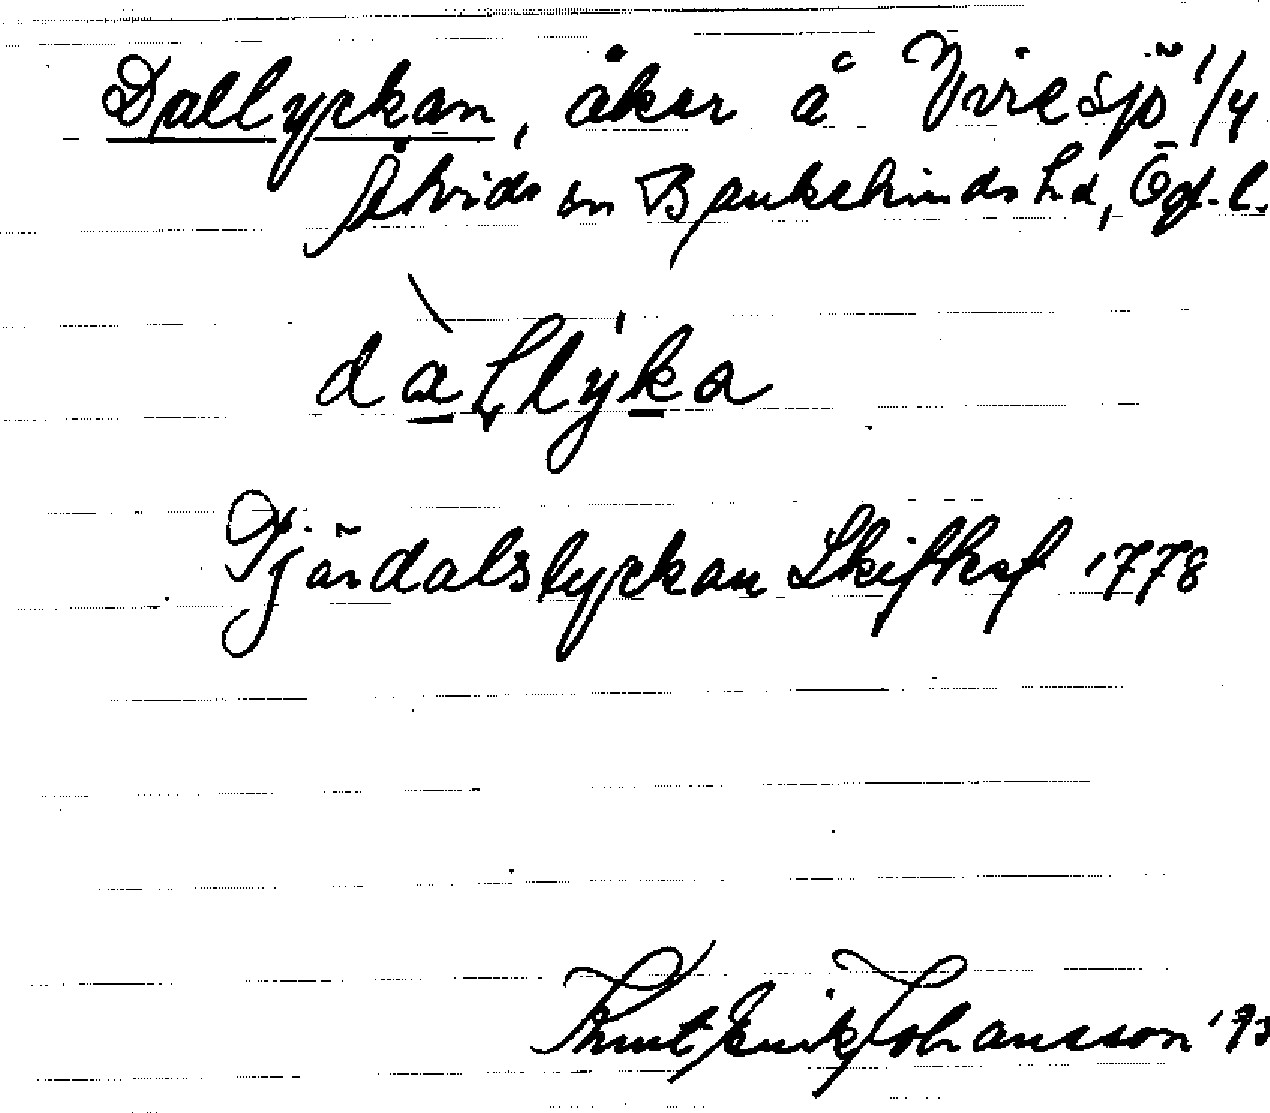 Dallyckan, åker å Viresjö 1/4
Åtvids sn Bankekinds hd, Ögl.
dàllýka
Tjärdalslyckan Skifksf 1778
Knut Erik Johansson '93